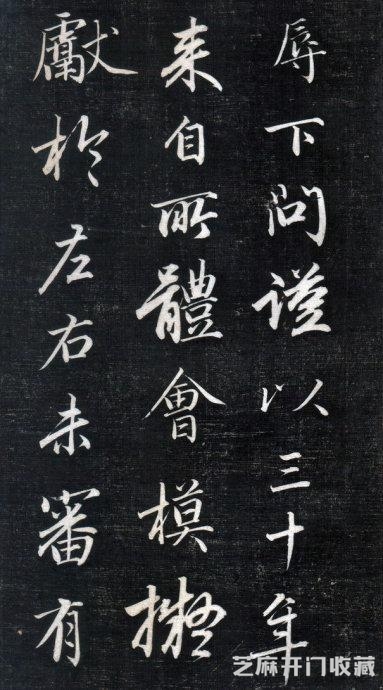 辱下問謹以三十年
来自所體會模擬
獻於左右未審有
芝麻开门收藏